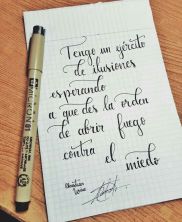 Tengo un ejército
de ilusiones
esperando
a que des la orden
de abrir fuego
contra el miedo